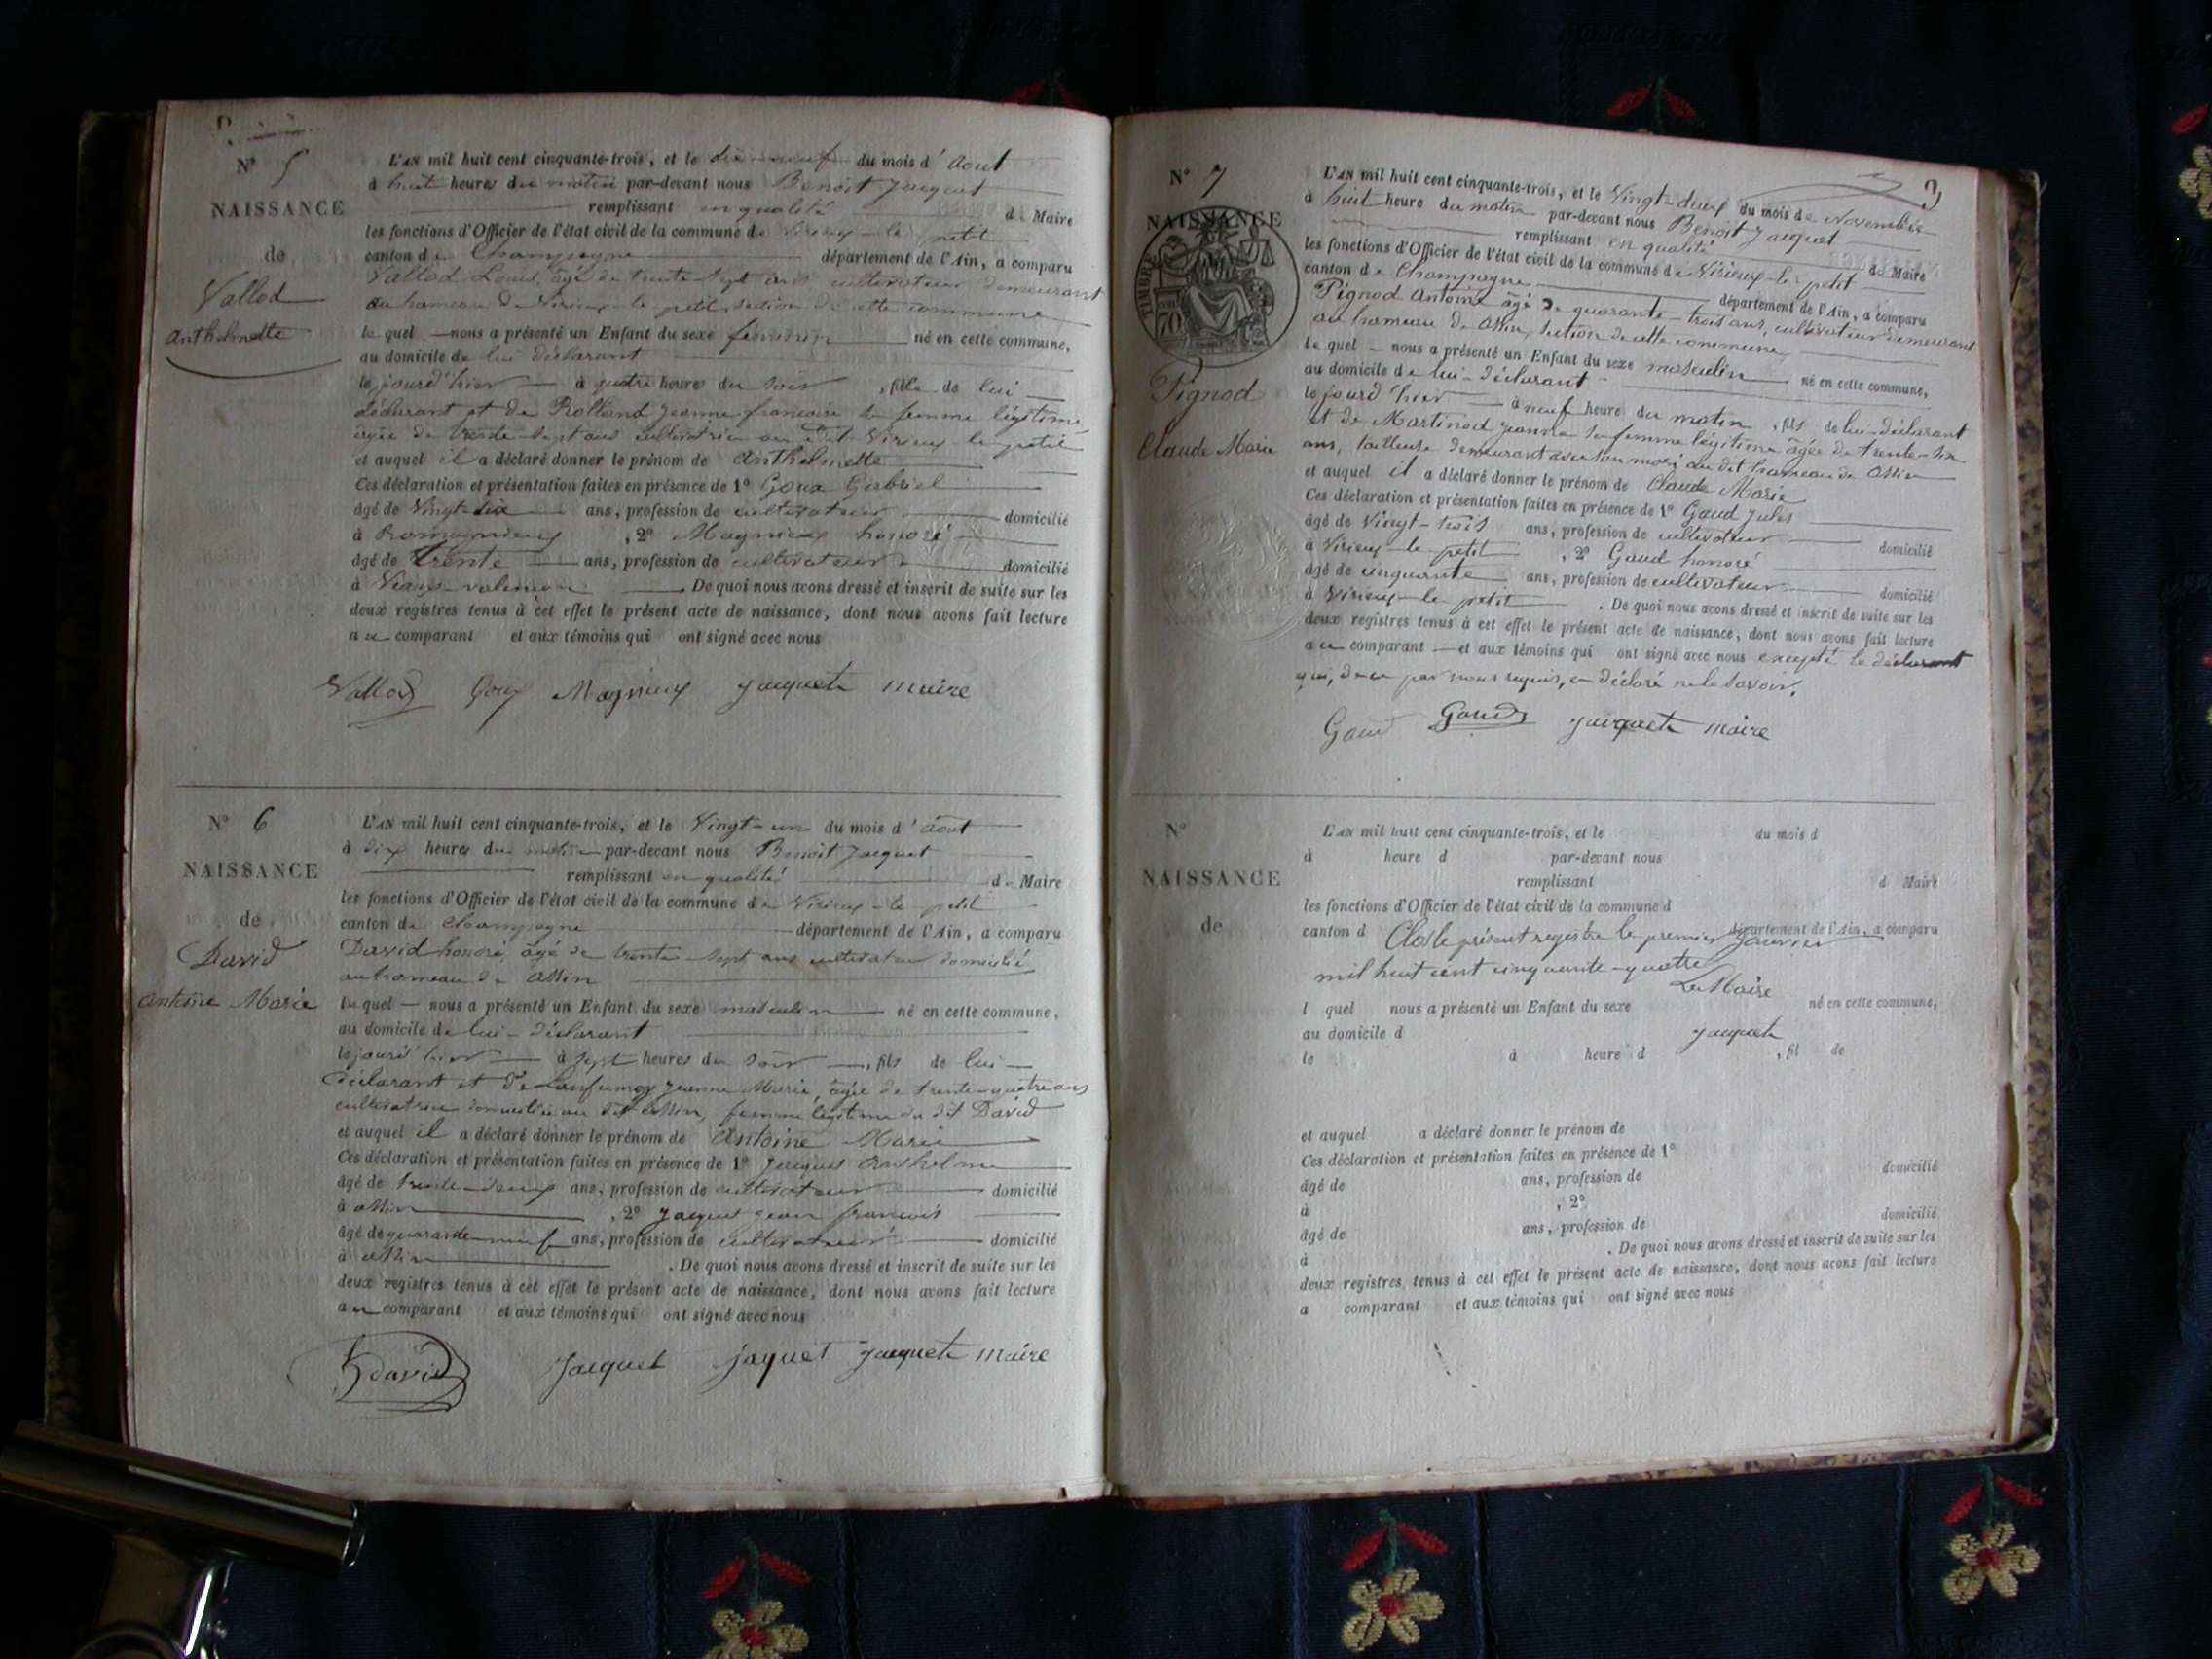 N° 5
NAISSANCE
de
Vallod
Anthelmette
L'AN mil huit cent cinquante-trois, et le dix-neuf du mois d'Aout
à huit heures du matin par-devant nous Benoit Jacquet
remplissant en qualité de Maire
les fonctions d'Officier de l'état civil de la commune de Virieux-le-petit
canton de Champagne département de l'Ain, a comparu
Vallod Louis, âgé de trente-sept ans cultivateur demeurant
au hameau de Virieux-le petit section de cette commune
le quel nous a présenté un Enfant du sexe féminin né en cette commune,
au domicile de lui déclarant
le jourd'hier à quatre heures du soir, fille de lui
déclarant et de Rolland Jeanne francoise sa femme légitime
âgée de trente-sept ans cultivatrice au dit Virieux-le petit
et auquel il a déclaré donner le prénom de Anthelmette
Ces déclaration et présentation faites en présence de 1° Goux Gabriel
âgé de Vingt-dix ans, profession de cultivateur domicilié
à Romagnieux, 2° Magnieux honoré
âgé de trente ans, profession de cultivateur domicilié
à De quoi nous avons dressé et inscrit de suite sur les
deux registres tenus à cet effet le présent acte de naissance, dont nous avons fait lecture
au comparant et aux témoins qui ont signé avec nous
Vallod Goux Magnieux Jacquet maire
N° 6
NAISSANCE
de
David
Antoine Marie
L'AN mil huit cent cinquante-trois, et le Vingt-un du mois d'Aout
à dix heures du matin par-devant nous Benoit Jacquet
remplissant en qualité de Maire
les fonctions d'Officier de l'état civil de la commune de Virieux-le-petit
canton de Champagne département de l'Ain, a comparu
David honoré, âgé de trente-sept ans cultivateur domicilié
au hameau de Assin
lequel nous a présenté un Enfant du sexe masculin né en cette commune,
au domicile de lui-déclarant
le jourd'hier à sept heures du soir, fils de lui
déclarant et de Jeanne Marie, âgée de trente-quatre ans
cultivatrice domiciliée au dit Assin, femme légitime du dit David
et auquel il a déclaré donner le prénom de Antoine Marie
Ces déclaration et présentation faites en présence de 1° Jacquet Anthelme
âgé de trente-deux ans, profession de cultivateur domicilié
à Assin, 2° Jacquet Jean francois
âgé de quarante-neuf ans, profession de cultivateur domicilié
à Assin. De quoi nous avons dressé et inscrit de suite sur les
deux registres tenus à cet effet le présent acte de naissance, dont nous avons fait lecture
au comparant et aux témoins qui ont signé avec nous
David Jacquet jaquet Jacquet maire
N° 7
NAISSANCE
TIMBRE
70
Pignod
Claude Marie
L'AN mil huit cent cinquante-trois, et le Vingt-deux du mois de Novembre
à huit heure du matin par-devant nous Benoit Jacquet
remplissant en qualité de Maire
les fonctions d'Officier de l'état civil de la commune de Virieux-le-petit
canton de Champagne département de l'Ain, a comparu
Pignod Antoine âgé de quarante-trois ans, cultivateur demeurant
au hameau de Assin, section de cette commune
le quel nous a présenté un Enfant du sexe masculin né en cette commune,
au domicile de lui-déclarant
le jourd'hier à neuf heure du matin, fils de lui-déclarant
et de Martinod Jeanne sa femme légitime âgée de trente-six
ans, tailleuse demeurant avec son mari au dit hameau de Assin
et auquel il a déclaré donner le prénom de Claude Marie
Ces déclaration et présentation faites en présence de 1° Gaud Jules
âgé de Vingt-trois ans, profession de cultivateur domicilié
à Virieux-le-petit, 2° Gaud honoré
âgé de cinquante ans, profession de cultivateur domicilié
à Virieux-le-petit. De quoi nous avons dressé et inscrit de suite sur les
deux registres tenus à cet effet le présent acte de naissance, dont nous avons fait lecture
au comparant et aux témoins qui ont signé avec nous excepté le déclarant
qui, de ce par nous requis, a déclaré ne le savoir.
Gaud Gaud Jacquet maire
N°
NAISSANCE
de
L'AN mil huit cent cinquante-trois, et le du mois d
à heure d par-devant nous
remplissant d Maire
les fonctions d'Officier de l'état civil de la commune d
canton d département de l'Ain, a comparu
Clos le présent registre le premier Janvier
mil huit cent cinquante-quatre
Le Maire
l quel nous a présenté un Enfant du sexe né en cette commune,
au domicile d
Jacquet
le à heure d, fil de
et auquel a déclaré donner le prénom de
Ces déclaration et présentation faites en présence de 1°
âgé de ans, profession de domicilié
à, 2°
âgé de ans, profession de domicilié
à. De quoi nous avons dressé et inscrit de suite sur les
deux registres tenus à cet effet le présent acte de naissance, dont nous avons fait lecture
a comparant et aux témoins qui ont signé avec nous